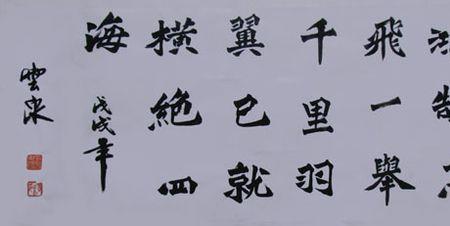 飛一舉
千里羽
翼已就
橫絕四
海
戊戌年
雲